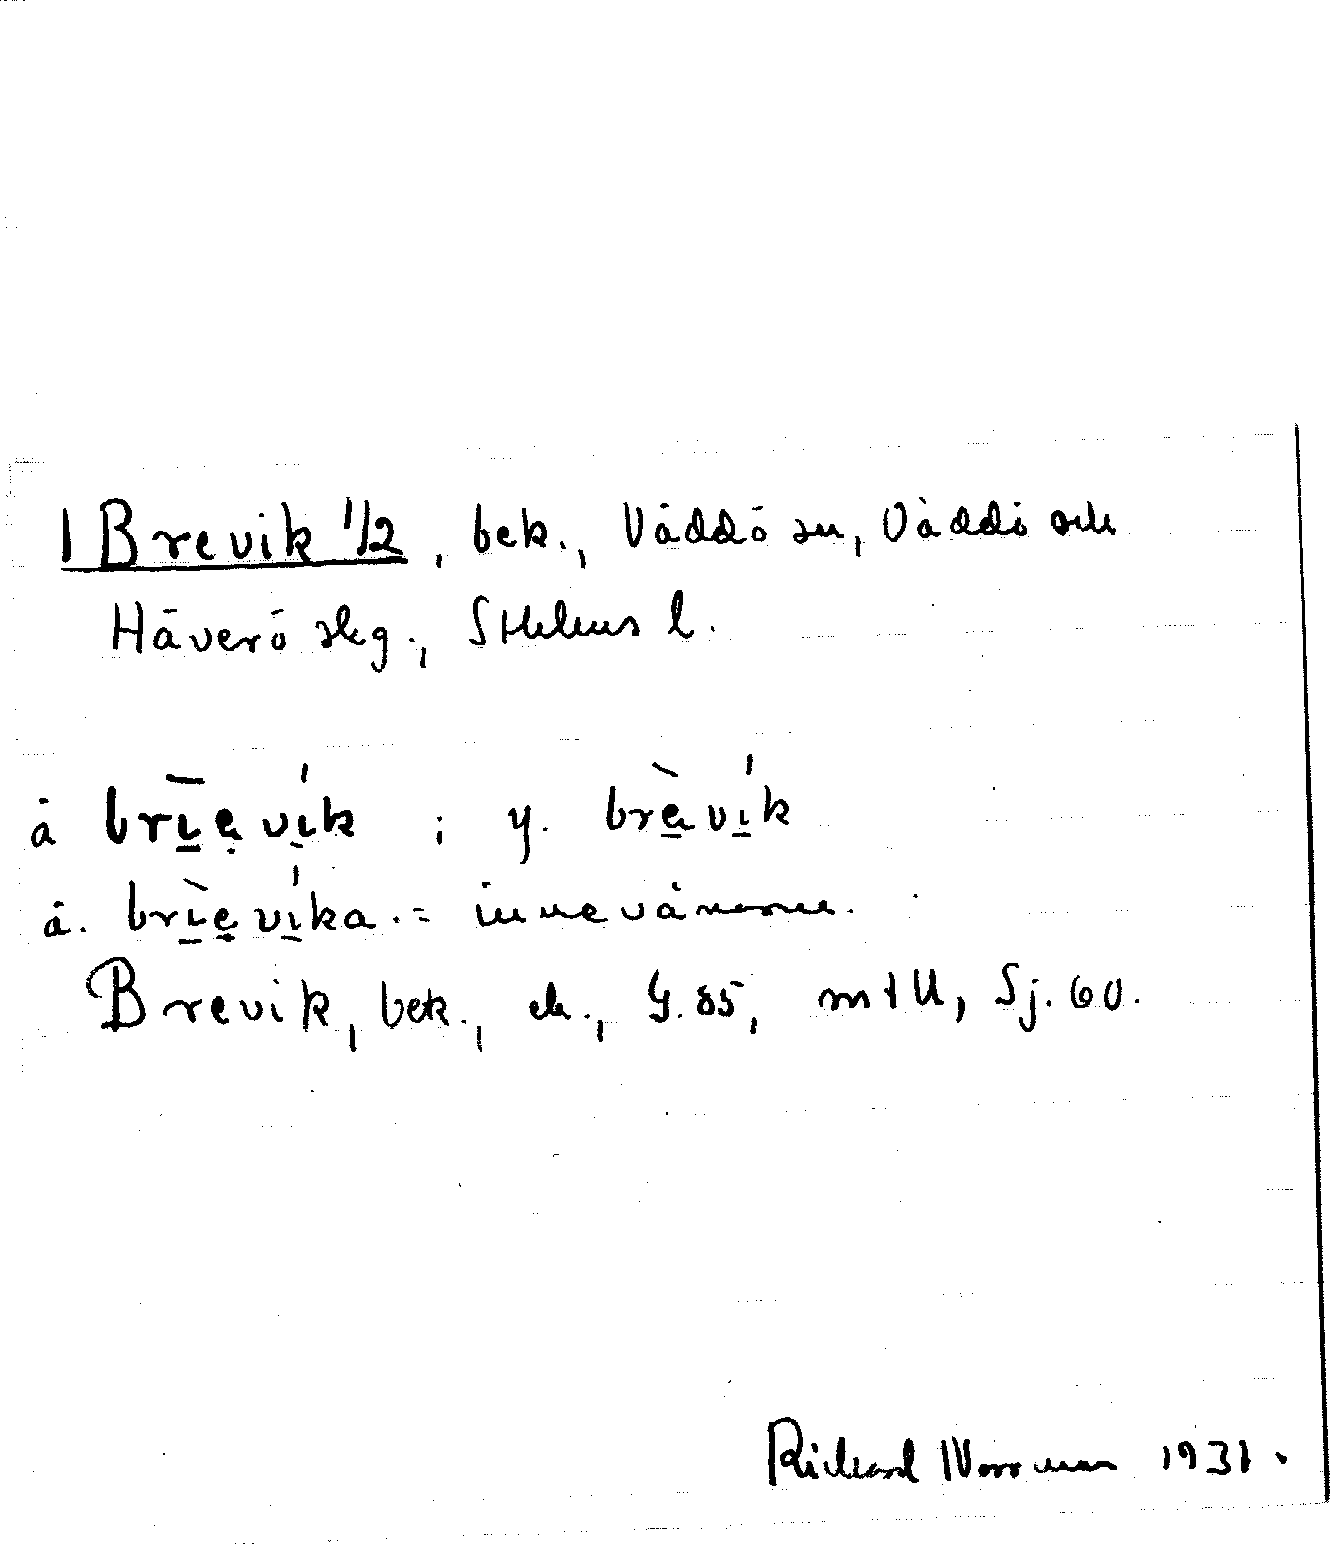 1 Brevik 1/2, bek., Väddö sn, Väddö och
Häverö skg., Sthlms l.
ä brīevík ; y. brèvík
ä. brìevíka = innevånarne.
Brevik, bek., ek., G. 85, mtU, Sj. 60.
Rickard Norrman 1931.